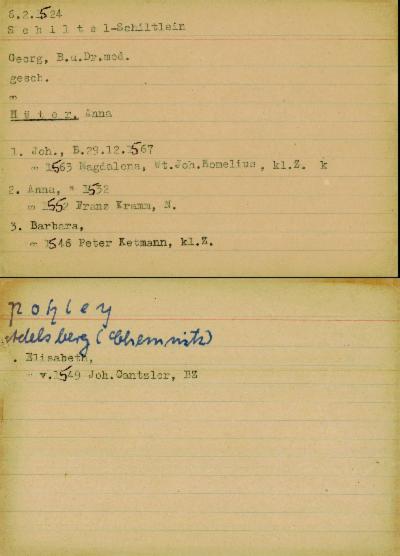 6.2.524
Schiltel-Schiltlein
Georg, B.u.Dr.med.
gesch.
∞
Hüter, Anna
1. Joh., B.29.12.1567
∞ 1563 Magdalena, Wt.Joh.Homelius, kl.Z. k
2. Anna, * 1532
∞ 1552 Franz Kramm, N.
3. Barbara,
∞ 1546 Peter Ketmann, kl.Z.
Pohley
Adelsberg (Chemnitz)
. Elisabeth,
∞ v.1549 Joh.Cantzler, BZ